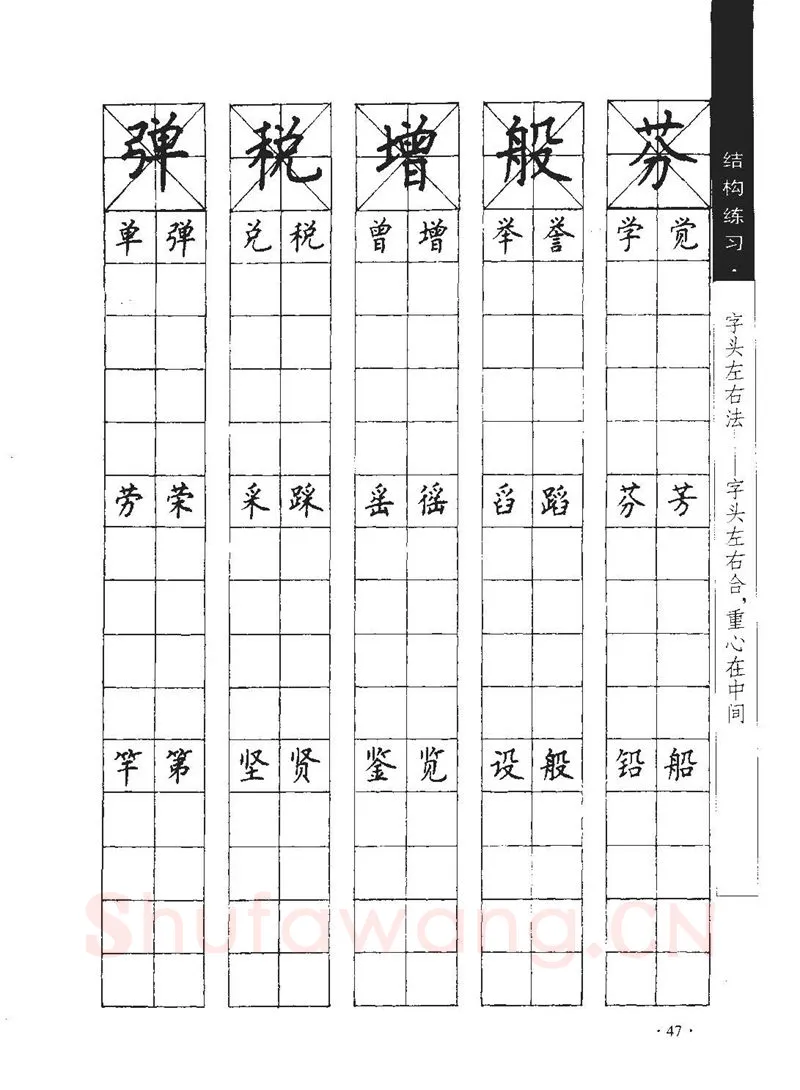 弹 税 增 般 芬
单 弹 兑 税 曾 增 举 誉 学 觉
劳 荣 采 踩 䍃 徭 舀 蹈 芬 芳
竿 第 坚 贤 鉴 览 设 般 铅 船
结构练习·
字头左右法——字头左右合，重心在中间
Shufawang.CN
·47·